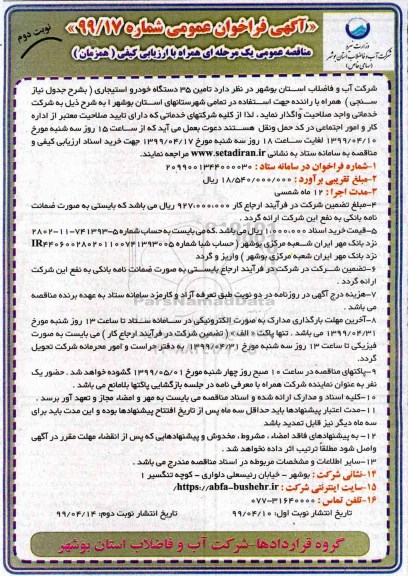 «آگهی فراخوان عمومی شماره ۹۹/۱۷»
نوبت دوم
مناقصه عمومی یک مرحله ای همراه با ارزیابی کیفی ( همزمان )
وزارت نیرو
شرکت آب و فاضلاب استان بوشهر
(سهامی خاص)
شرکت آب و فاضلاب استان بوشهر در نظر دارد تامین ۳۵ دستگاه خودرو استیجاری ( بشرح جدول نیاز
سنجی ) همراه با راننده جهت استفاده در تمامی شهرستانهای استان بوشهر را به شرح ذیل به شرکت
خدماتی واجد صلاحیت واگذار نماید . لذا از کلیه شرکتهای خدماتی که دارای تایید صلاحیت معتبر از اداره
کار و امور اجتماعی در کد حمل ونقل هستند دعوت بعمل می آید که از ساعت ۱۵ روز سه شنبه مورخ
۱۳۹۹/۰۴/۱۰ لغایت ساعت ۱۸ روز سه شنبه مورخ ۱۳۹۹/۰۴/۱۷ جهت خرید اسناد ارزیابی کیفی و
مناقصه به سامانه ستاد به نشانی www.setadiran.ir مراجعه نمایند.
۱-شماره فراخوان در سامانه ستاد : ۲۰۹۹۰۰۱۳۴۴۰۰۰۰۳۰
۲-مبلغ تقریبی برآورد : ۱۸/۵۴۰/۰۰۰/۰۰۰ ریال
۳-مدت اجرا : ۱۲ ماه شمسی
۴-مبلغ تضمین شرکت در فرآیند ارجاع کار ۹۲۷،۰۰۰،۰۰۰ ریال می باشد که بایستی به صورت ضمانت
نامه بانکی به نفع این شرکت ارائه گردد .
۵-قیمت خرید اسناد ۱،۰۰۰،۰۰۰ ریال می باشد .که می بایست به حساب شماره ۵-۷۴۱۳۹۳-۱۱-۲۸۰۲
نزد بانک مهر ایران شعبه مرکزی بوشهر ( حساب شبا شماره IR۴۴۰۶۰۰۲۸۰۲۰۱۱۰۰۷۴۱۳۹۳۰۰۵
نزد بانک مهر ایران شعبه مرکزی بوشهر ) واریز و گردد
۶-تضمین شرکت در شرکت در فرآیند ارجاع بایستی به صورت ضمانت نامه بانکی به نفع این شرکت
ارائه گردد.
۷-هزینه درج آگهی در روزنامه در دو نوبت طبق تعرفه آزاد و کارمزد سامانه ستاد به عهده برنده مناقصه
می باشد .
۸-آخرین مهلت بارگذاری مدارک به صورت الکترونیکی در سامانه ستاد تا ساعت ۱۳ روز شنبه مورخ
۱۳۹۹/۰۴/۳۱ می باشد . تنها پاکت « الف » ( تضمین شرکت در فرآیند ارجاع کار ) می بایست به صورت
فیزیکی تا ساعت ۱۳ روز سه شنبه مورخ ۱۳۹۹/۰۴/۳۱ به دفتر حراست و امور محرمانه شرکت تحویل
گردد.
۹-پاکتهای مناقصه در ساعت ۱۰ صبح روز چهار شنبه مورخ ۱۳۹۹/۰۵/۰۱ گشوده خواهد شد . حضور یک
نفر به عنوان نماینده شرکت همراه با معرفی نامه در جلسه بازگشایی پاکتها بلامانع می باشد .
۱۰-کلیه اسناد و مدارک ارائه شده و اسناد مناقصه می بایست به مهر و امضاء مجاز و تعهد آور برسد .
۱۱-مدت اعتبار پیشنهادها باید حداقل سه ماه پس از تاریخ افتتاح پیشنهادها بوده و این مدت باید برای
سه ماه دیگر نیز قابل تمدید باشد
۱۲- به پیشنهادهای فاقد امضاء ، مشروط ، مخدوش و پیشنهادهایی که پس از انقضاء مهلت مقرر در آگهی
واصل شود مطلقاً ترتیب اثر داده نخواهد شد .
۱۳-سایر اطلاعات و مشخصات مربوطه در اسناد مناقصه مندرج می باشد .
۱۴-نشانی شرکت : بوشهر - خیابان رئیسعلی دلواری - کوچه تنگسیر ۱
۱۵-سایت اینترنتی شرکت : https://abfa-bushehr.ir/
۱۶-تلفن تماس : ۳۱۶۴۰۰۰۰-۰۷۷
تاریخ انتشار نوبت اول: ۹۹/۰۴/۱۰ تاریخ انتشار نوبت دوم: ۹۹/۰۴/۱۴
گروه قراردادها-شرکت آب و فاضلاب استان بوشهر